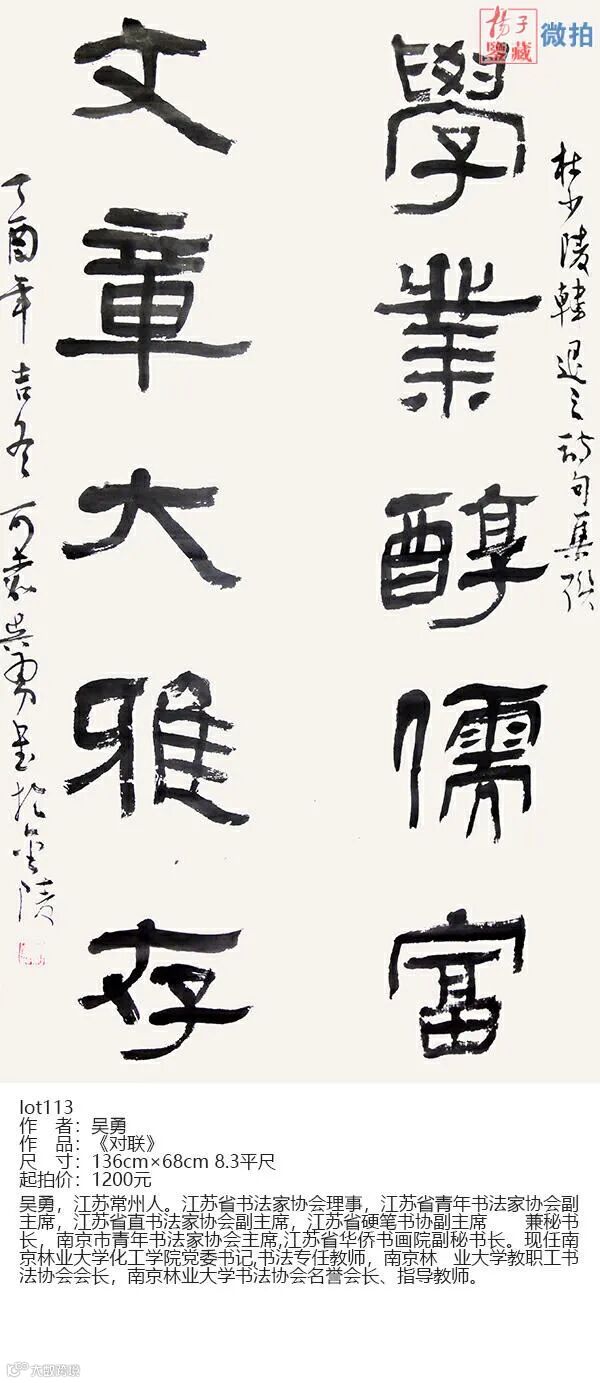 揚子
鑒藏
微拍
杜少陵韓退之詩句集聯
學業醇儒富
文章大雅存
丁酉年吉冬可裘吴勇書於金陵
lot113
作 者：吴勇
作 品：《对联》
尺 寸：136cm×68cm 8.3平尺
起拍价：1200元
吴勇，江苏常州人。江苏省书法家协会理事，江苏省青年书法家协会副
主席，江苏省直书法家协会副主席，江苏省硬笔书协副主席 兼秘书
长，南京市青年书法家协会主席,江苏省华侨书画院副秘书长。现任南
京林业大学化工学院党委书记,书法专任教师，南京林 业大学教职工书
法协会会长，南京林业大学书法协会名誉会长、指导教师。
大歐跨境